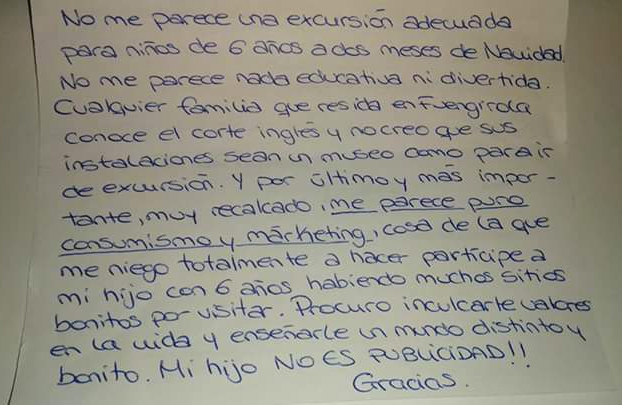 No me parece una excursión adecuada
para niños de 6 años a dos meses de Navidad.
No me parece nada educativa ni divertida.
Cualquier familia que resida en Fuengirola
conoce el corte inglés y no creo que sus
instalaciones sean un museo como para ir
de excursión. Y por último y más impor-
tante, muy recalcado, me parece puro
consumismo y márketing, cosa de la que
me niego totalmente a hacer partícipe a
mi hijo con 6 años habiendo muchos sitios
bonitos por visitar. Procuro inculcarle valores
en la vida y enseñarle un mundo distinto y
bonito. Mi hijo NO ES PUBLICIDAD!!
Gracias.